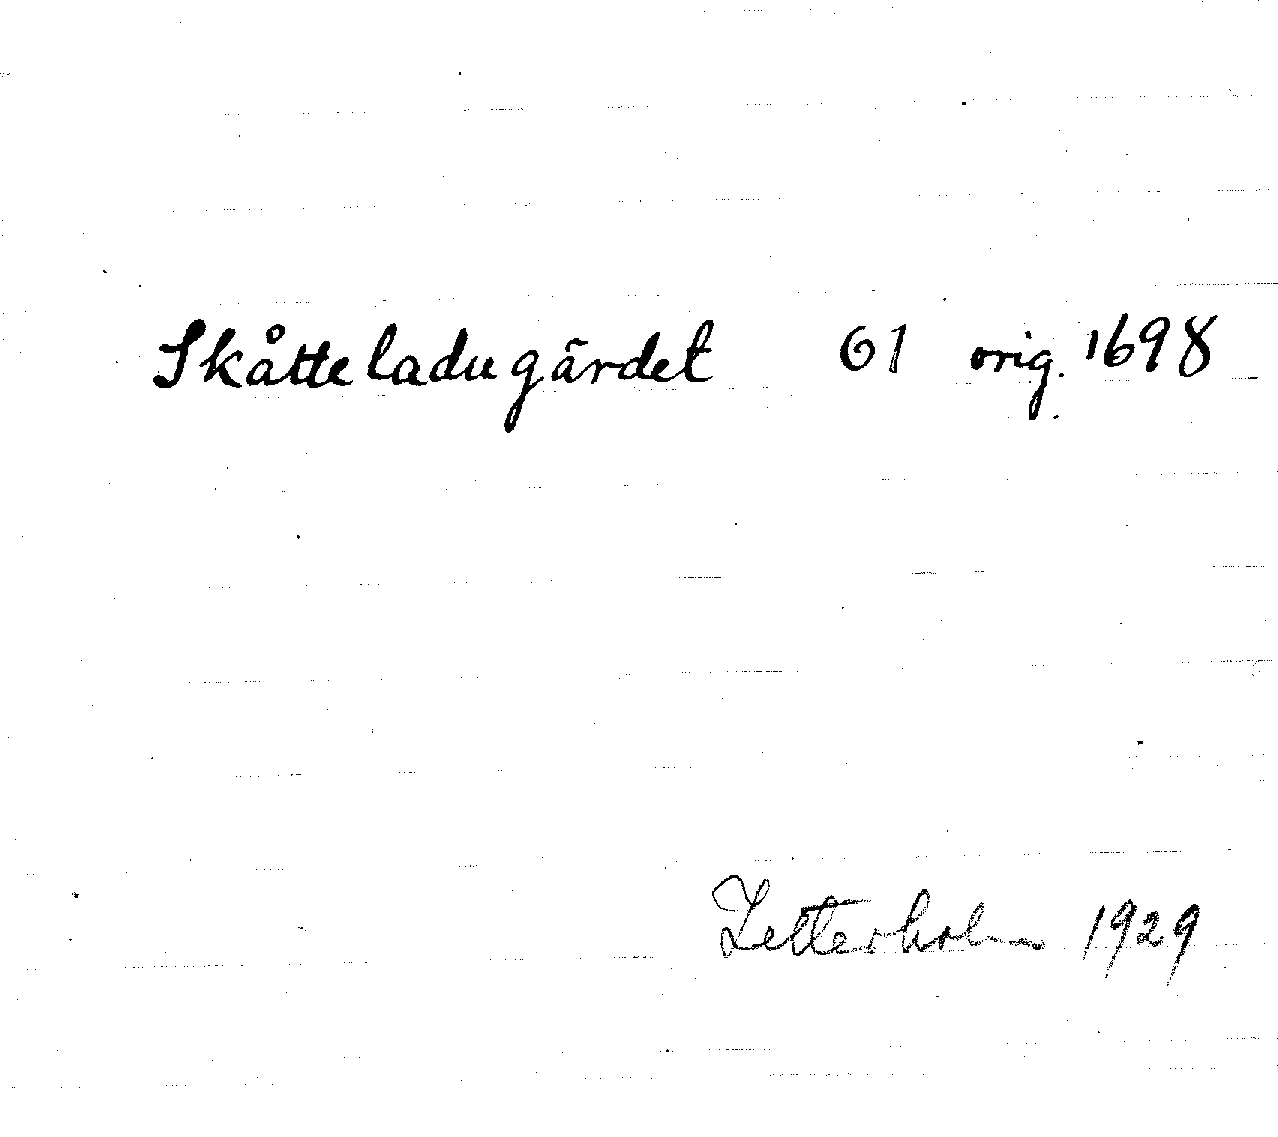 Skåtteladugärdet 61 orig. 1698
Zetterholm 1929